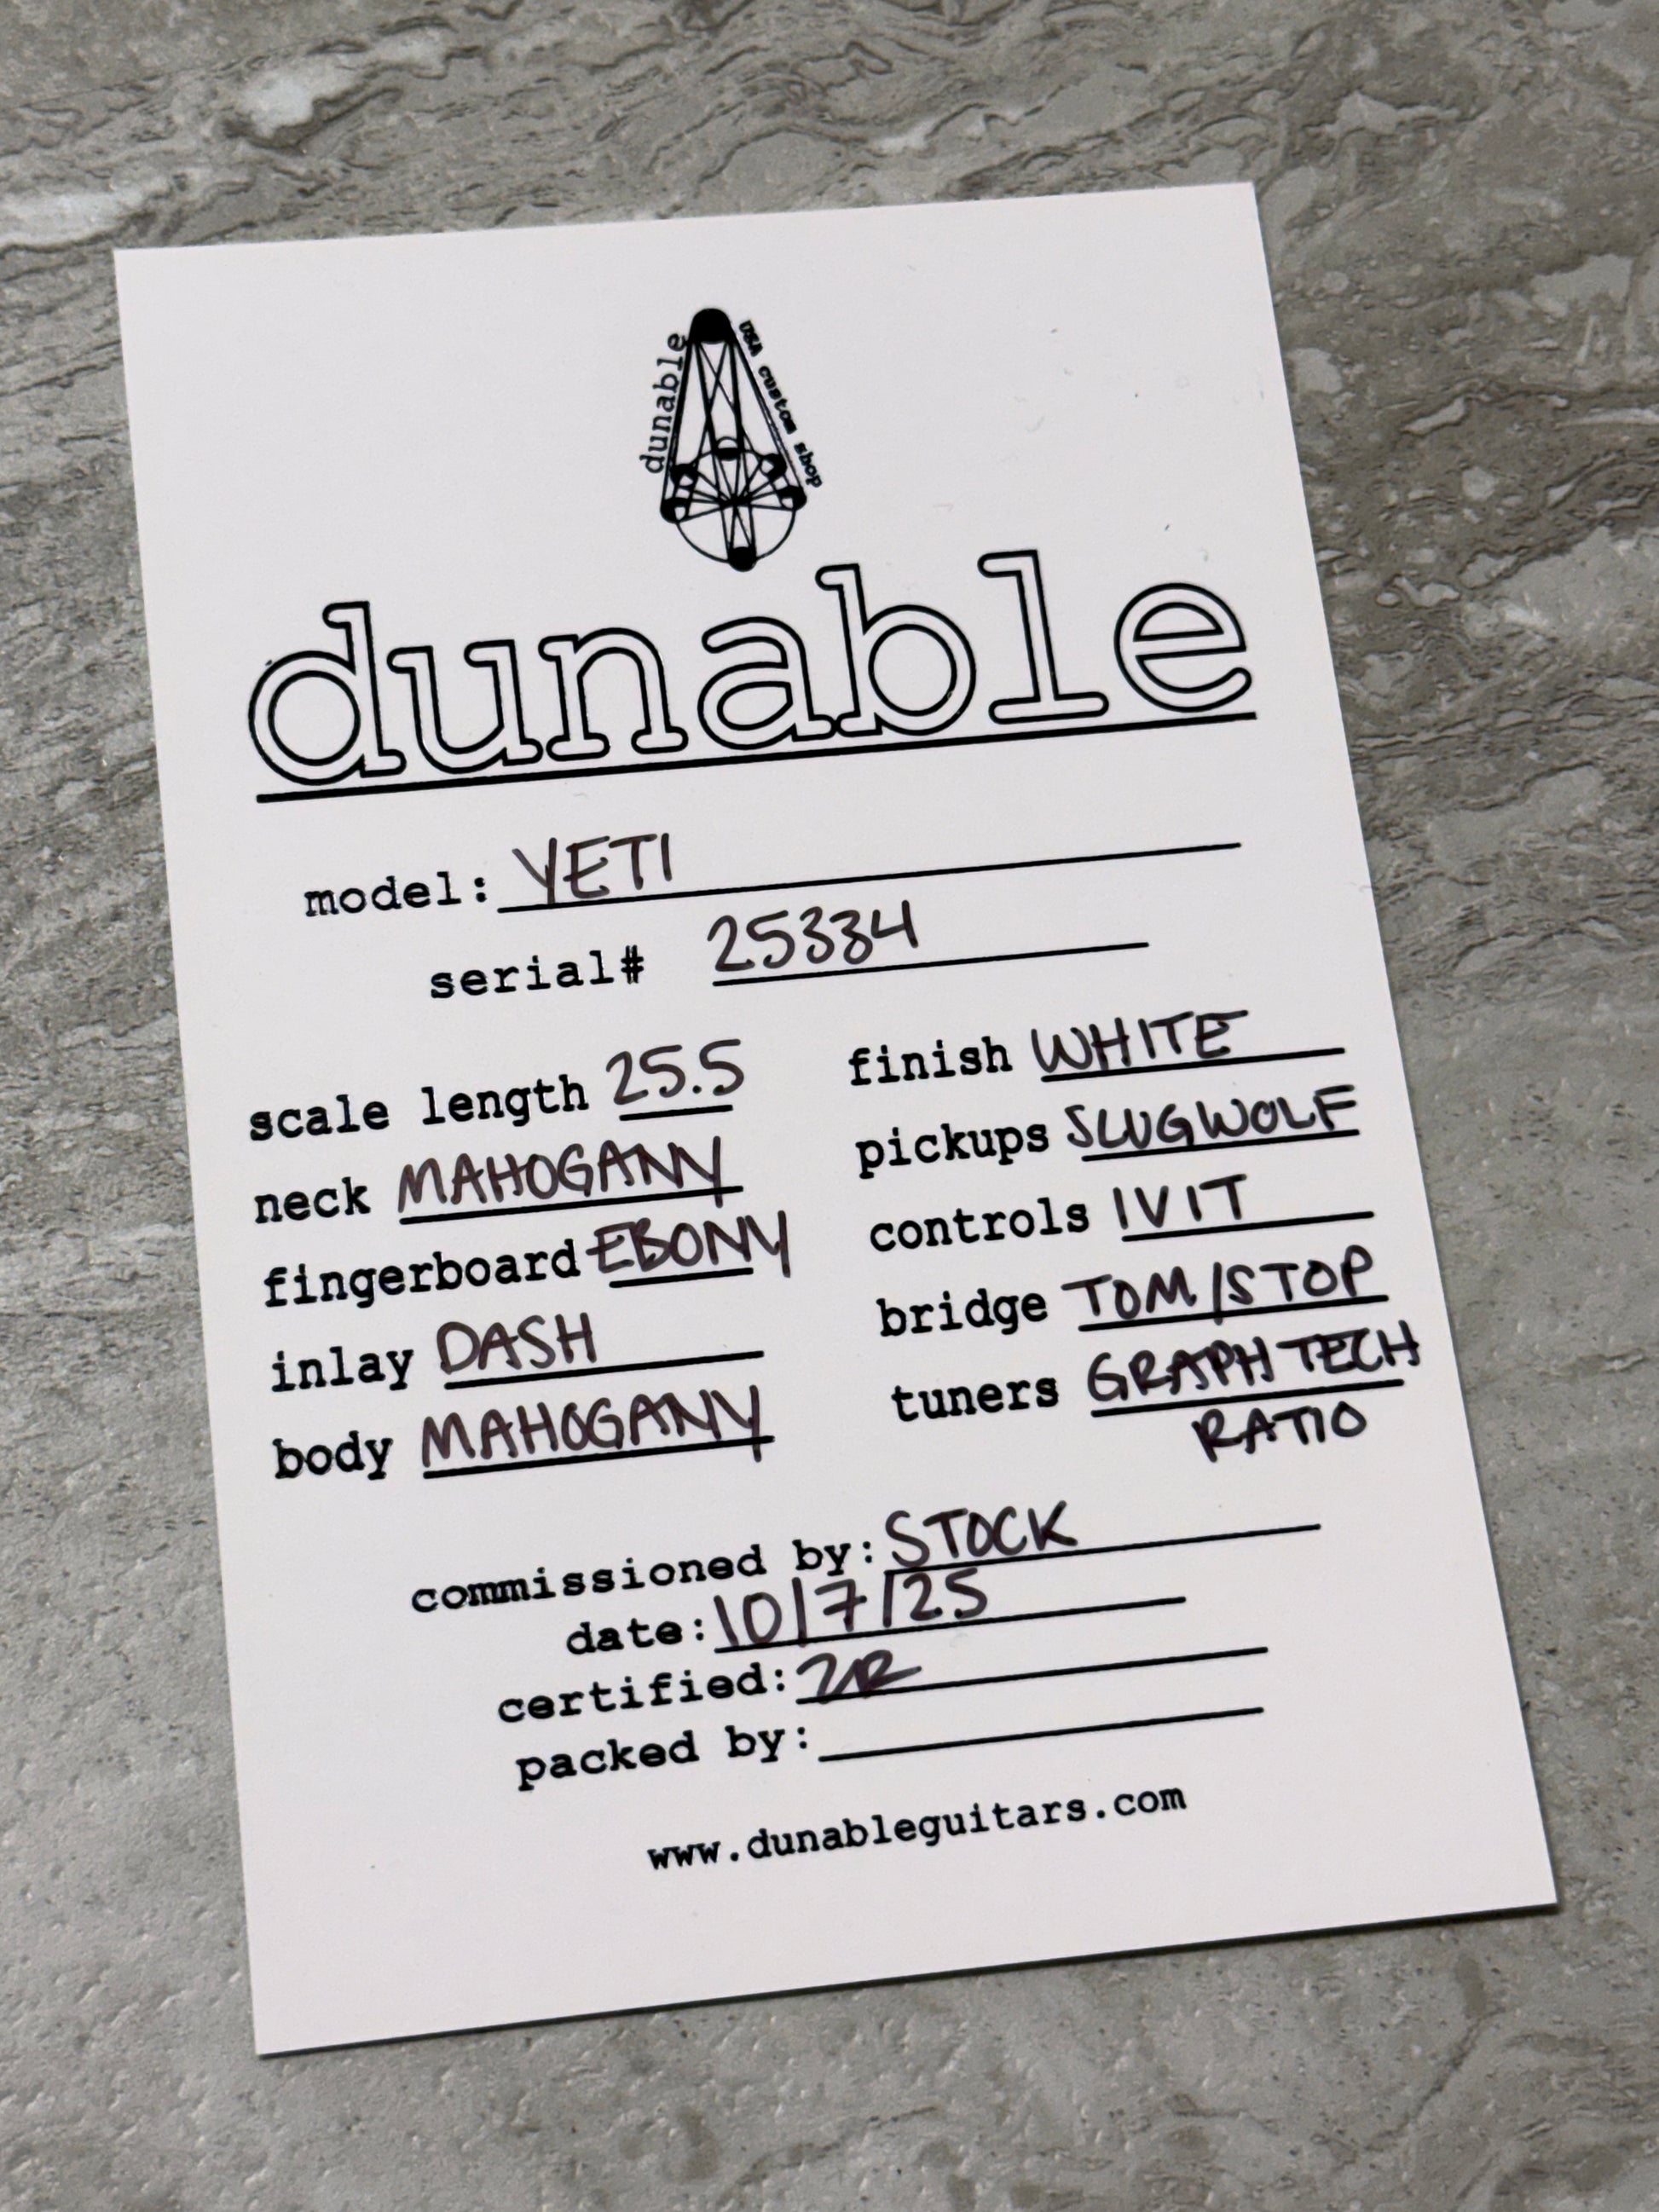 dunable USA custom shop
dunable
model: YETI
serial# 25334
scale length 25.5
neck MAHOGANY
fingerboard EBONY
inlay DASH
body MAHOGANY
finish WHITE
pickups SLUGWOLF
controls 1V1T
bridge TOM/STOP
tuners GRAPHTECH
RATIO
commissioned by: STOCK
date: 10/7/25
certified:
packed by:
www.dunableguitars.com